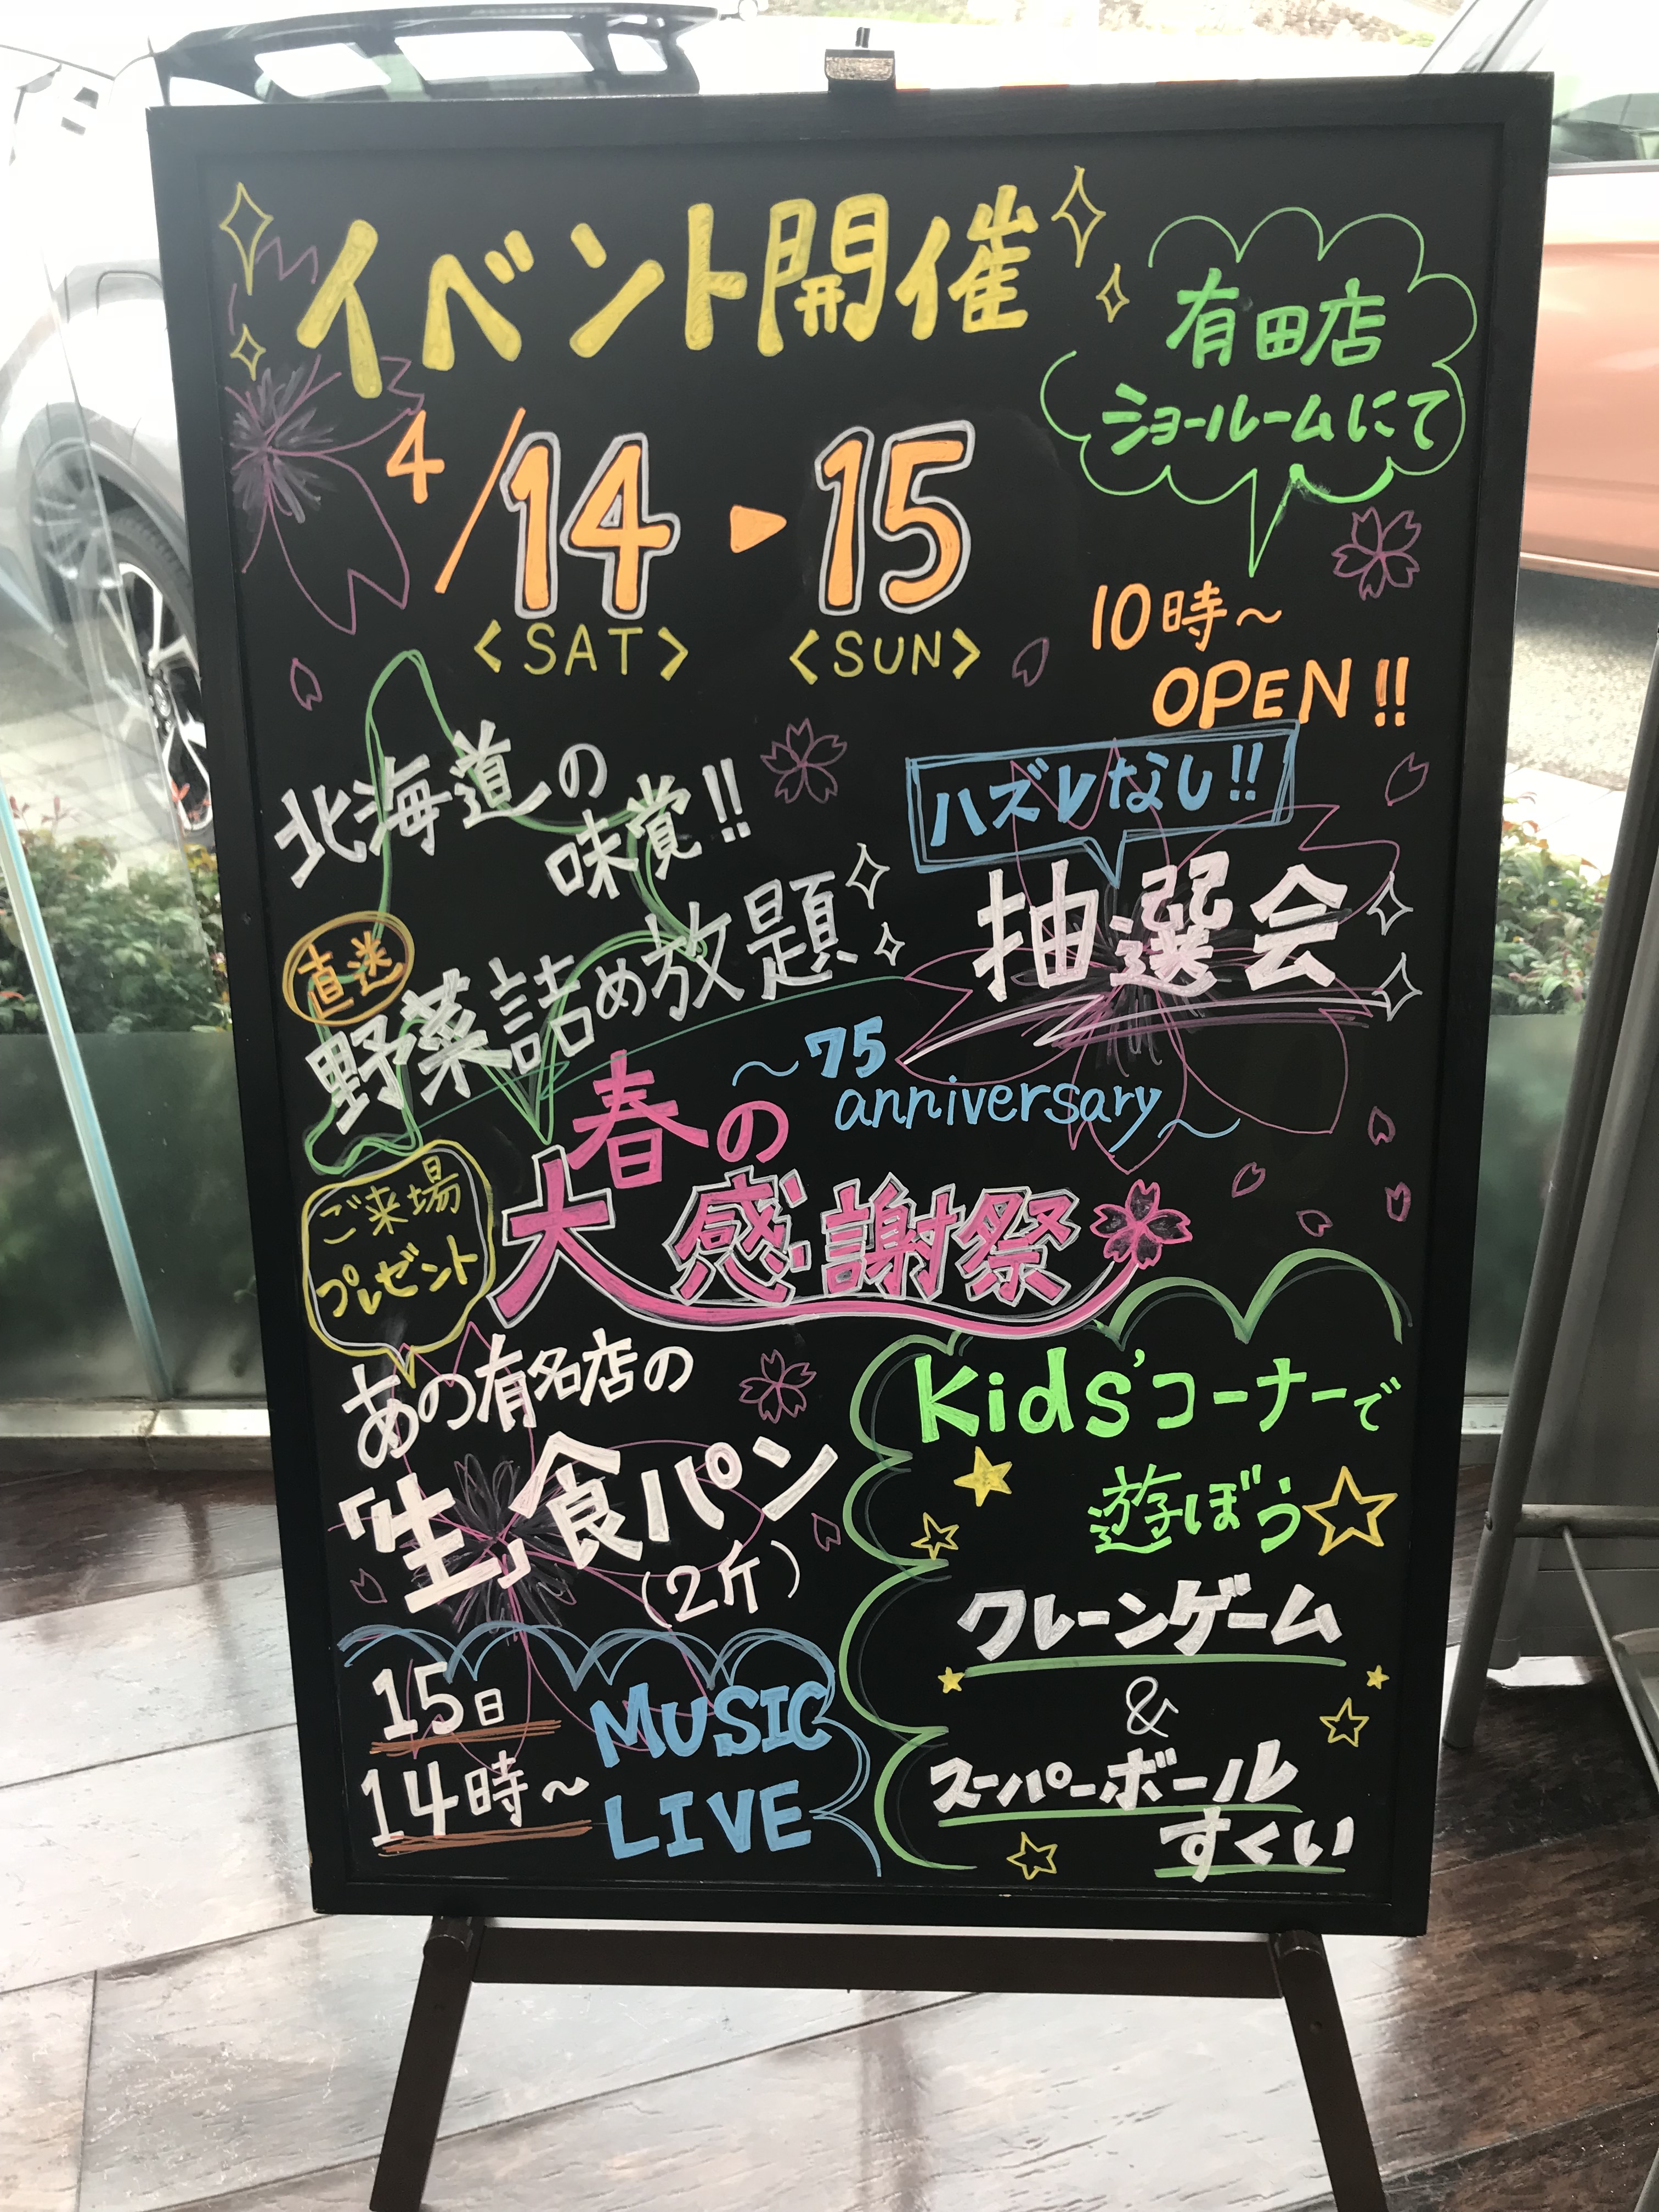 イベント開催
有田店
ショールームにて
4/14▶15
<SAT> <SUN>
10時〜
OPEN!!
北海道の
味覚!!
直送
野菜詰め放題
ハズレなし!!
抽選会
〜75
anniversary〜
春の
大感謝祭
ご来場
プレゼント
あの有名店の
「生」食パン
(2斤)
15日
14時〜
MUSIC
LIVE
Kids'コーナーで
遊ぼう
クレーンゲーム
&
スーパーボール
すくい